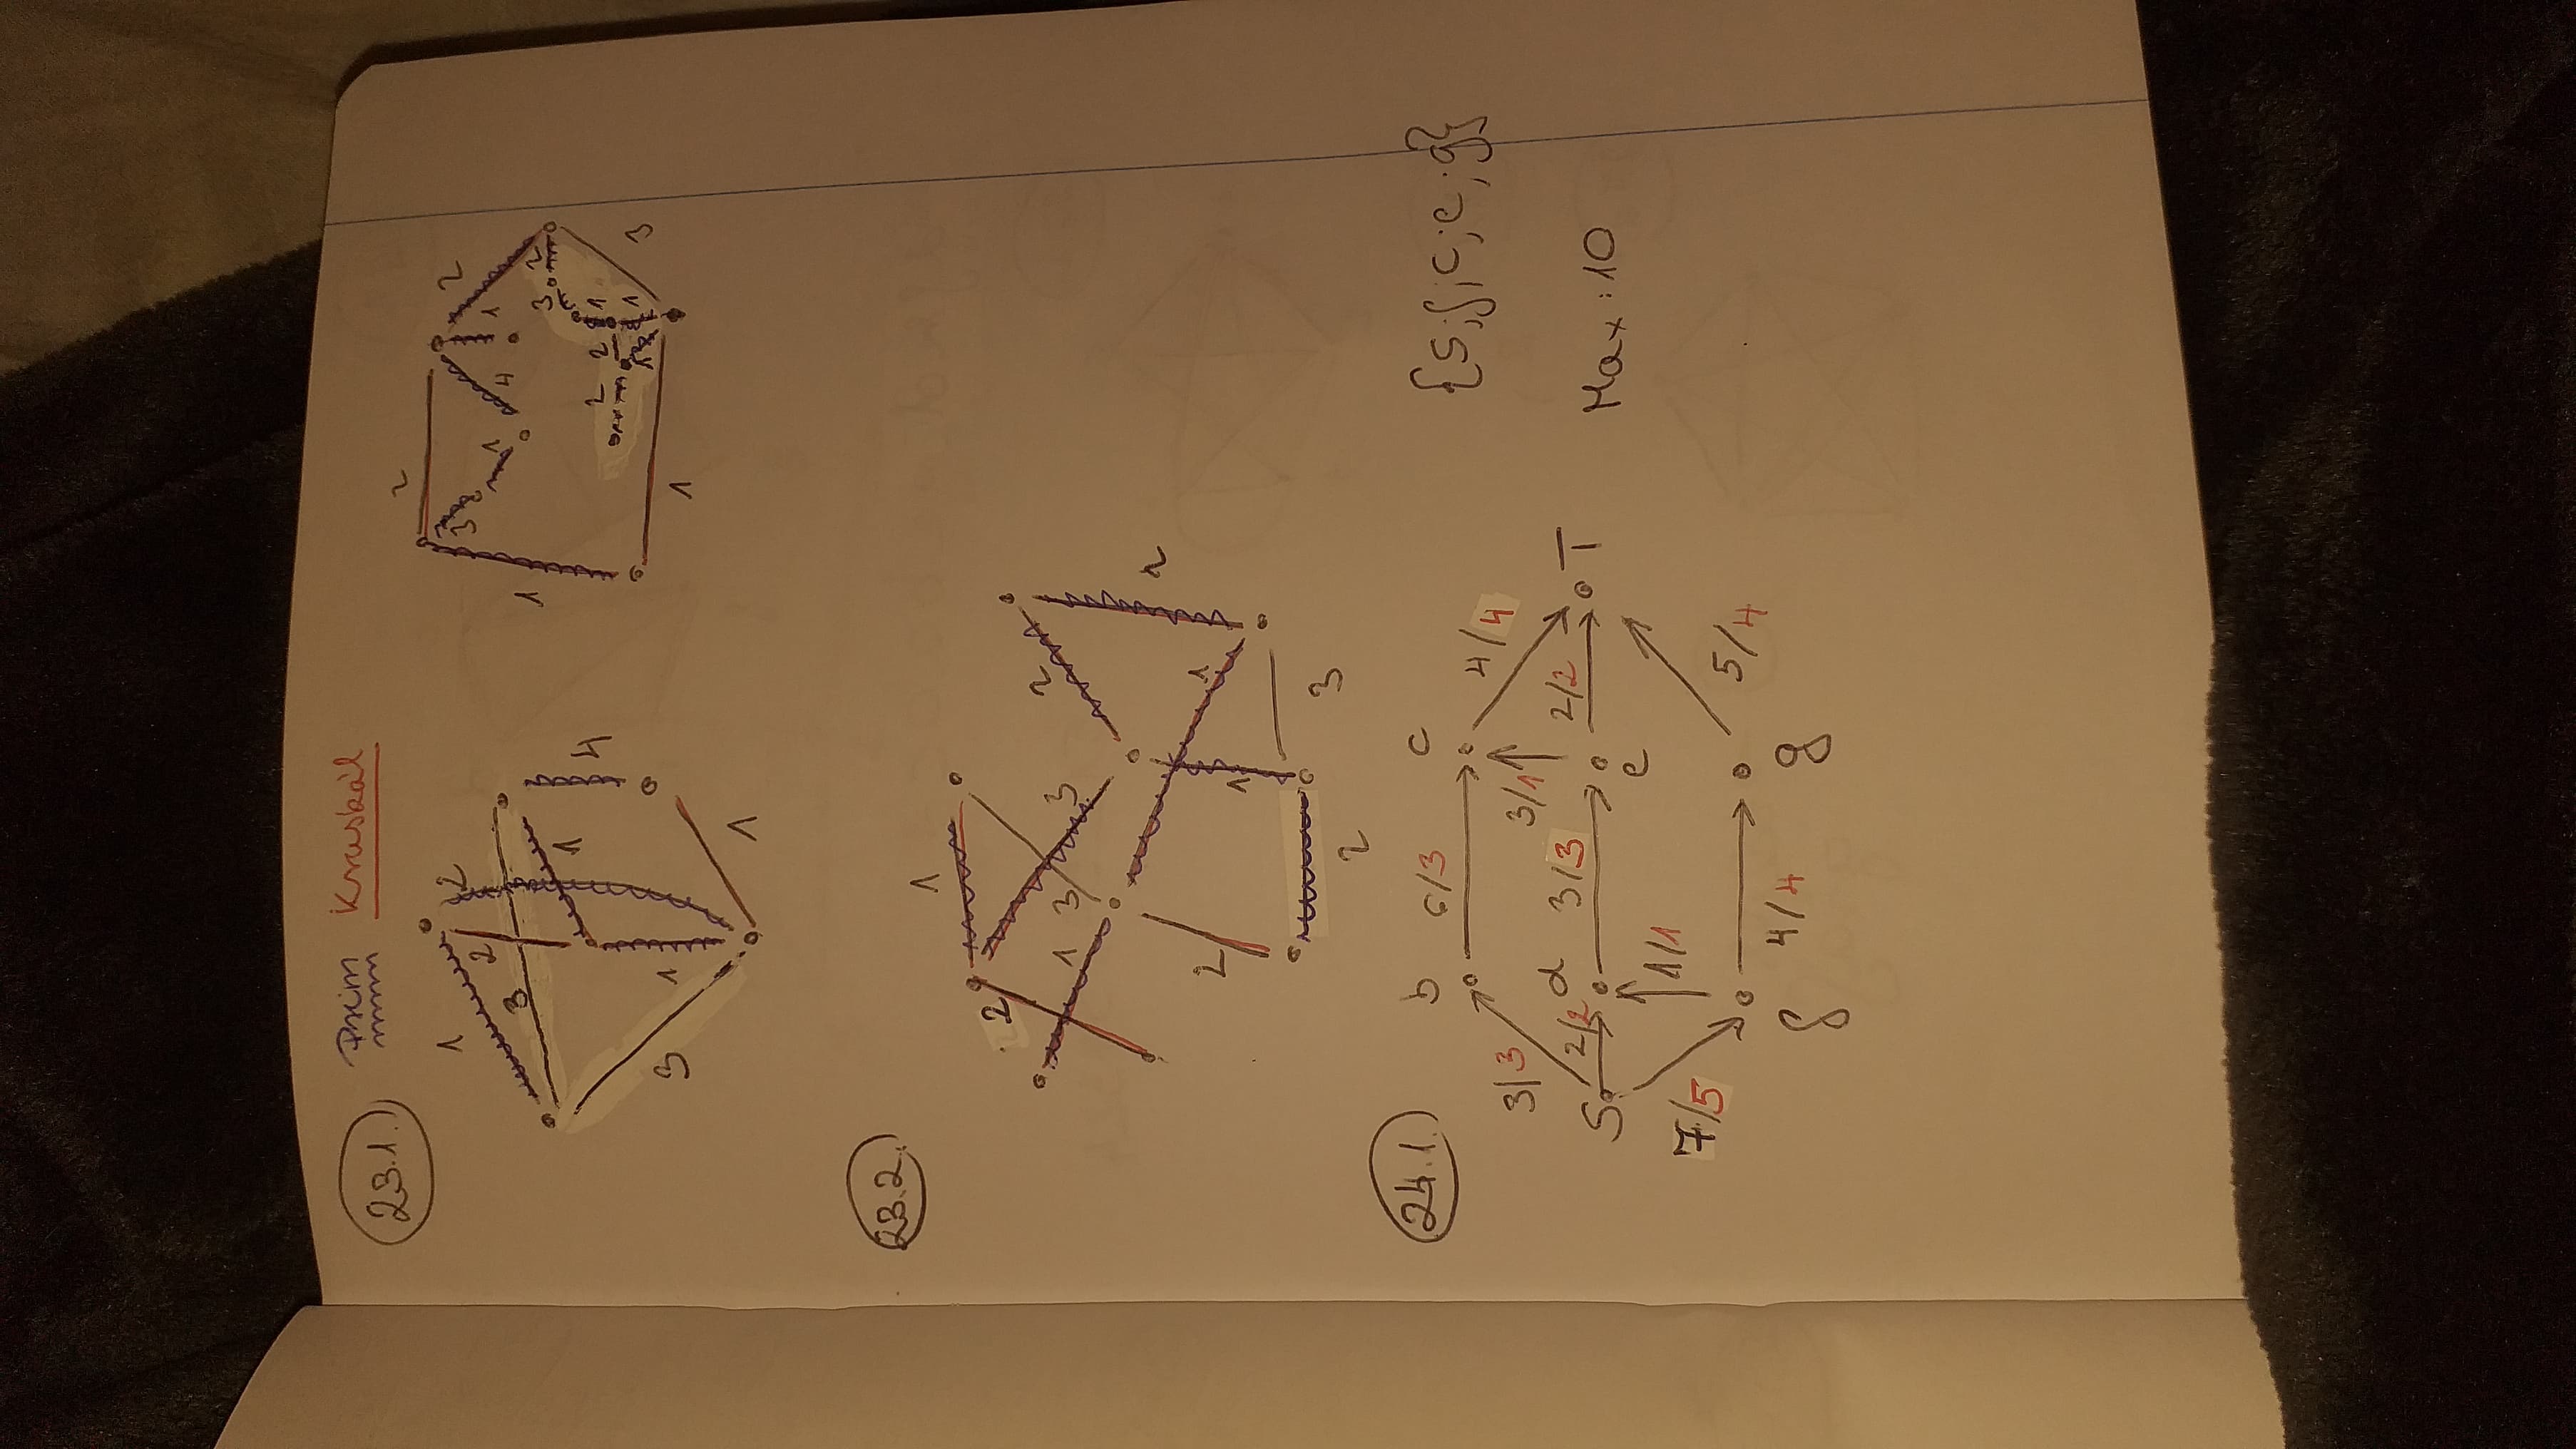 23.1. Prim Kruskál
1 2 2 3 1 1 3 4 1
2 1 3 1 4 1 2 3 2 3 1 1 2 2 1
23.2.
2 1 1 3 3 2 2 1 1 2 3 2
24.1.
b 6/3 c
3/3 3/1 4/4
S 2/2 d 3/3 e 2/2 T
7/5 1/1
f 4/4 g 5/4
{S; f; c; e; g}
Max: 10